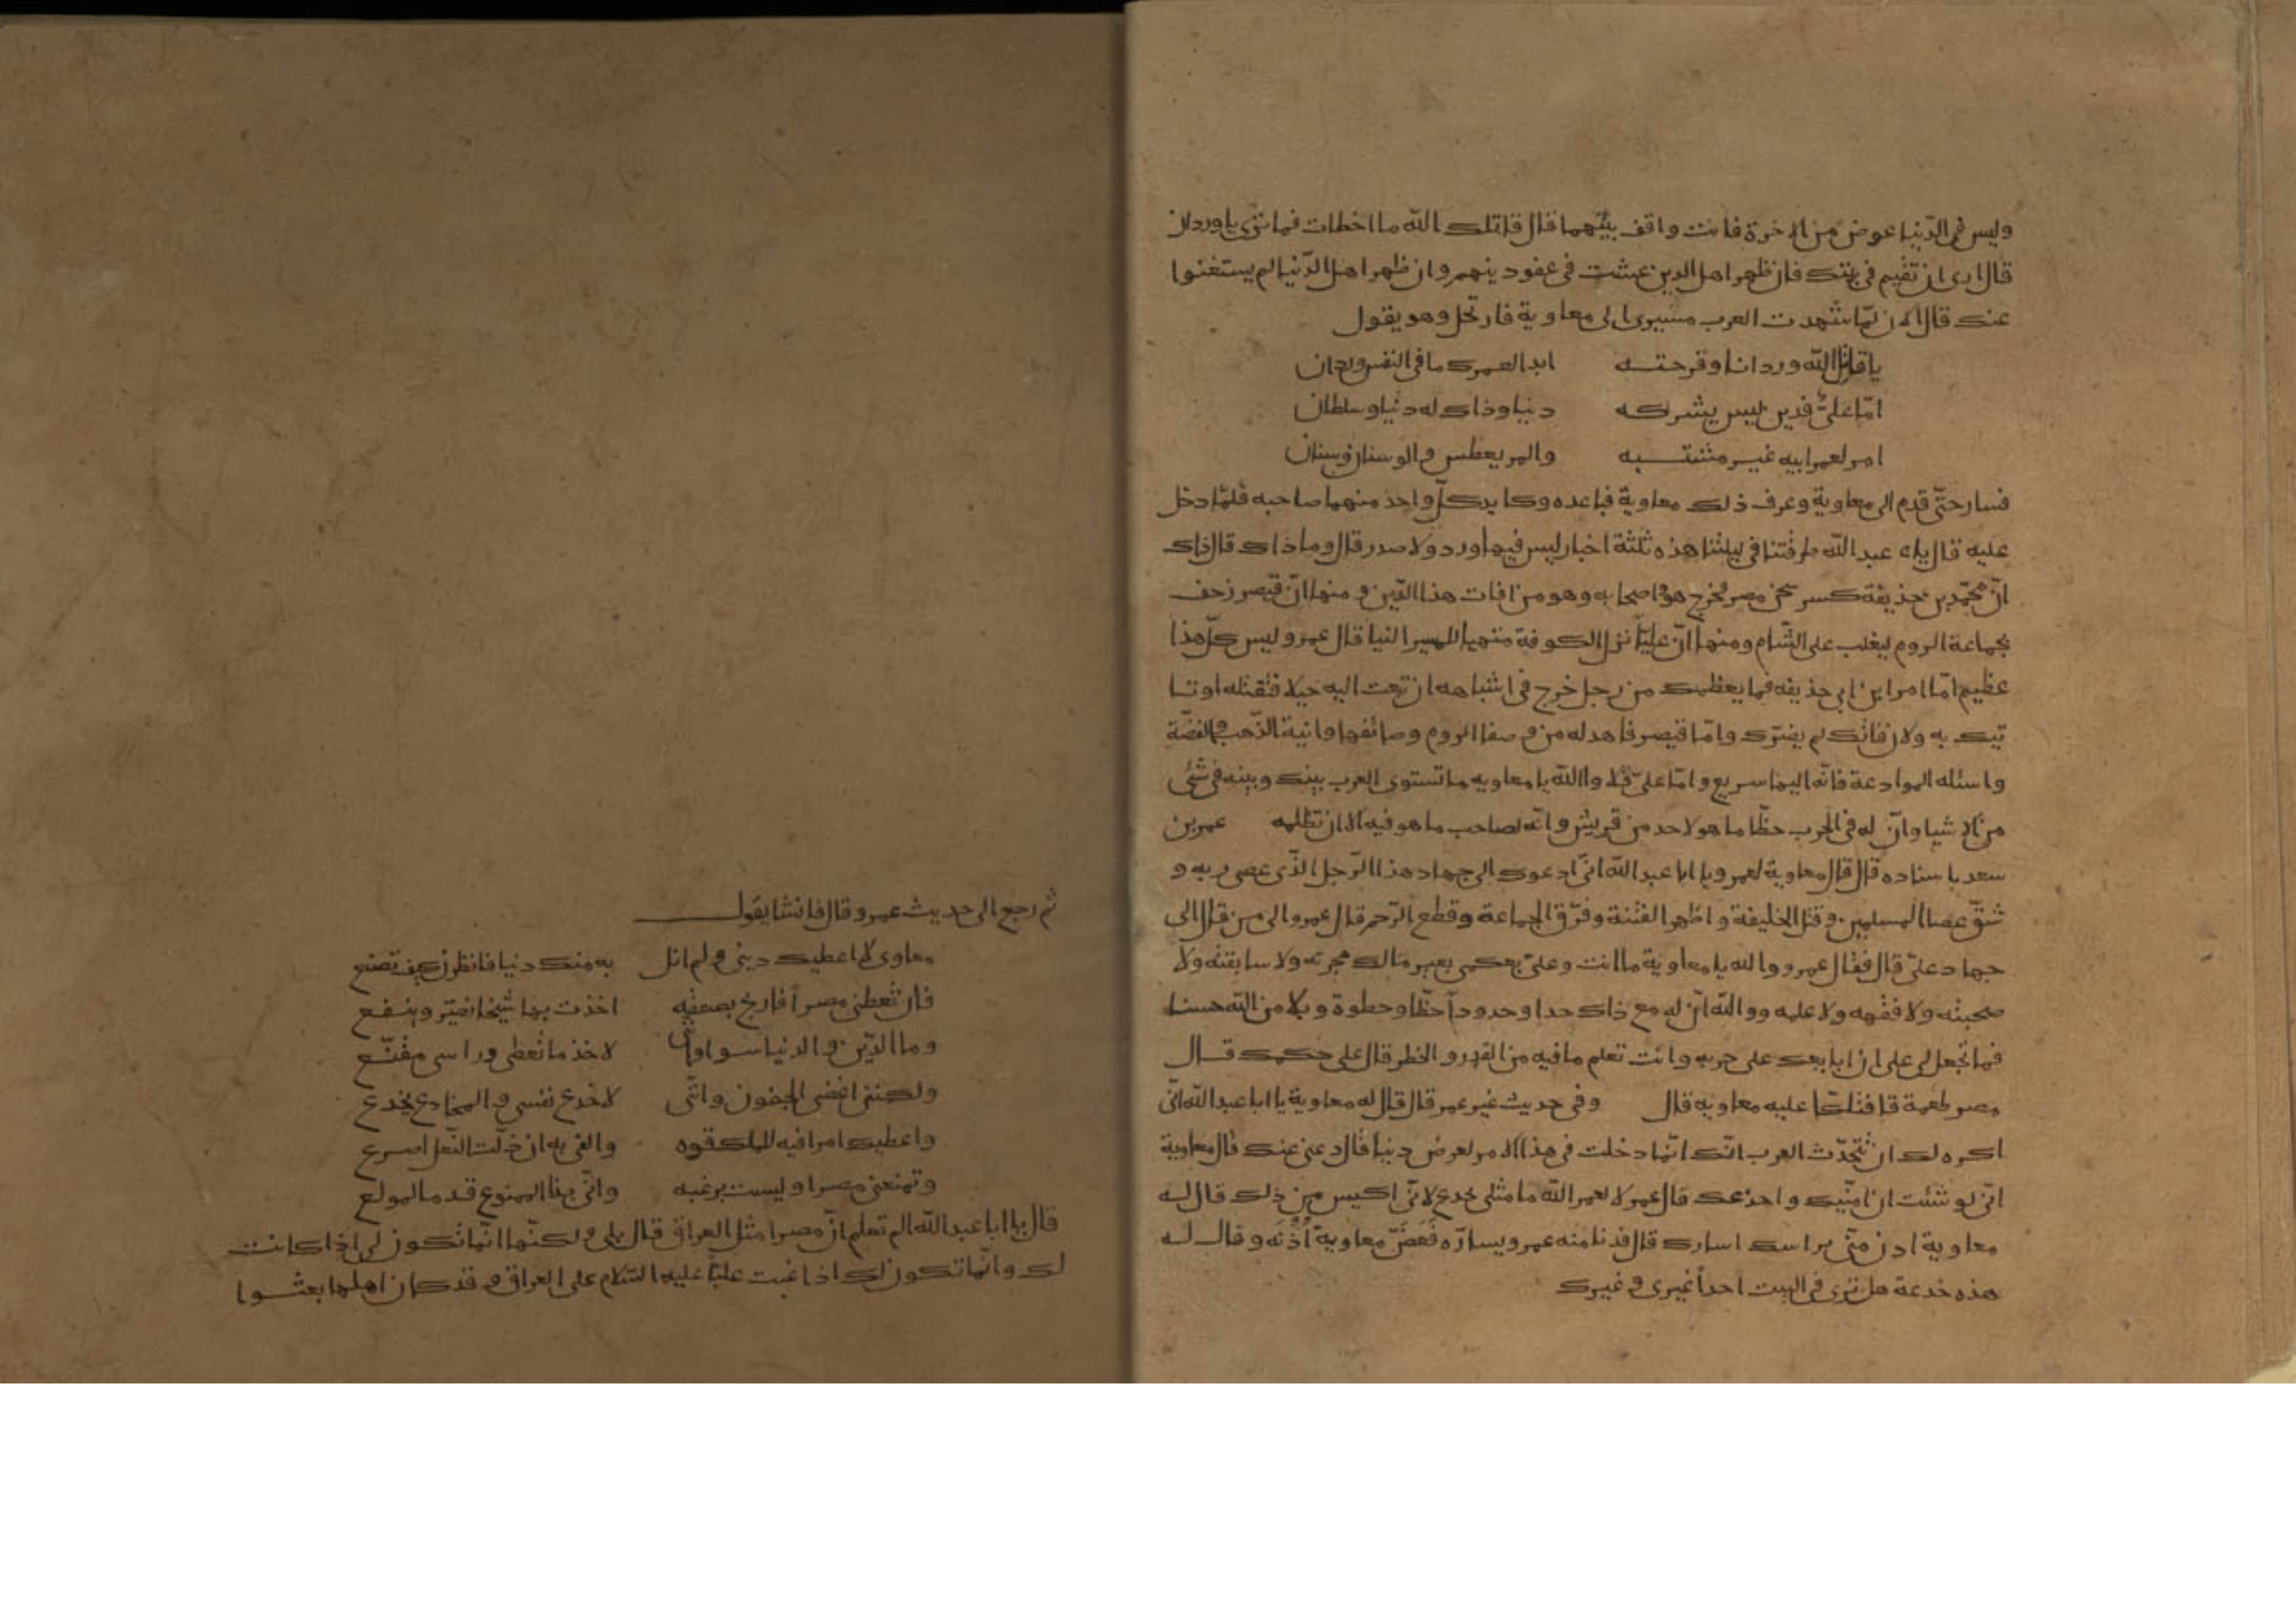 وليس في الدّنيا عوض من الاخرة فانت واقف بينهما قال قاتلك الله ما اخطات فما ترى يا وردان
قال ارى ان تقيم في بيتك فان ظهر اهل الدين عشت في عفو دينهم وان ظهر اهل الدّنيا لم يستغنوا
عنك قال الان لمّا شهدت العرب مسيرى الى معاوية فارتحل وهو يقول
يا قاتل الله وردانا وقرحتــه ابدا لعمرك ما في النفس وردان
امّا علىّ فدين ليس يشركه دنيا وذاك له دنيا وسلطان
امر لعمر ابيه غيــر مشتــبه والمر يعطس والوسنان وسنان
فسار حتّى قدم الى معاوية وعرف ذلك معاوية فباعده وكايد كلّ واحد منهما صاحبه فلمّا دخل
عليه قال يابا عبد الله طرقتنا في ليلتنا هذه ثلثة اخبار ليس فيها ورد ولا صدر قال وما ذاك قال ذاك
انّ محمّد بن حذيفة كسر سجن مصر فخرج هو واصحابه وهو من افات هذا الدّين ومنها انّ قيصر زحف
بجماعة الروم ليغلب على الشّام ومنها انّ عليّا نزل الكوفة متهيا للمسير الينا قال عمرو ليس كلّ هذا
عظيم امّا امر ابن ابى حذيفه فما يعظمك من رجل خرج في اشباهه ان تبعث اليه خيلا فتقتله او تــا
تيك به ولان فاتك لم يضرّك وامّا قيصر فاهد له من وصفا الروم وصائفها وانية الذّهب والفضّة
واسئله الموادعة فانّه اليها سريع وامّا علىّ فلا والله يا معاويه ما تستوى العرب بينك وبينه في شئى
من الاشيا وانّ له في الحرب حظّا ما هو لاحد من قريش وانّه لصاحب ما هو فيه الا ان تظلمه عمر بن
سعد باسناده قال قال معاوية لعمرو يا ابا عبد الله انّى ادعوك الى جهاد هذا الرّجل الذّى عصى ربه و
شقّ عصا المسلمين وقتل الخليفة واظهر الفتنة وفرّق الجماعة وقطع الرّحم قال عمرو الى من قال الى
جهاد علىّ قال فقال عمرو والله يا معاوية ما انت وعلىّ بعكمى بعير مالك هجرته ولا سابقته ولا
صحبته ولا فقهه ولا علمه ووالله انّ له مع ذاك حدا وحدوداً حظّا وحطوة وبلا من الله حسنا
فما تجعل لى على ان ابايعك على حربه وانت تعلم ما فيه من القدر والخطر قال على حكمك قــال
مصر طعمة قا فتلكّا عليه معاويه قال وفى حديث غير عمر قال قال له معاوية يا ابا عبد الله انّى
اكره لك ان تتحدّث العرب انّك انّما دخلت في هذا الامر لعرض دنيا قال دعنى عنك قال معاوية
انّى لو شئت ان امنّيك واخدعك قال عمر لا لعمر الله ما مثلى يخدع لانّى اكيس من ذلك قال لــه
معاوية ادن منّى براسك اسارك قال فدنا منه عمرو يسارّه فَعَضّ معاوية اُذُنَه وقال لــه
هذه خدعة هل ترى في البيت احداً غيرى وغيرك
ثم رجع الى حديث عمر وقال فانشا يقول
معاوى لا اعطيك دينى ولم انل به منك دنيا فانظرن كيف تصنع
فان تعطنى مصراً فاربح بصفقه اخذت بها شيخا نضيّر وينــفــع
وما الدّين والدنيا سوا وانّى لاخذ ما تعطى وراسى مقنّــع
ولكننى اغضى الجفون وانّنى لاخدع نفسى والمخادع يخدع
واعطيك امرا فيه للملك قوه والفى به ان زلّت النّعل اصرع
وتمنعنى مصرا وليست برغبه وانّى بذا الممنوع قدما لمولع
قال يا ابا عبد الله الم تعلم انّ مصرا مثل العراق قال بلى ولكنّها انّما تكون لى اذا كانت
لك وانّما تكون لك اذا غبت عليّا عليه السّلام على العراق وقد كان اهلها بعثــوا